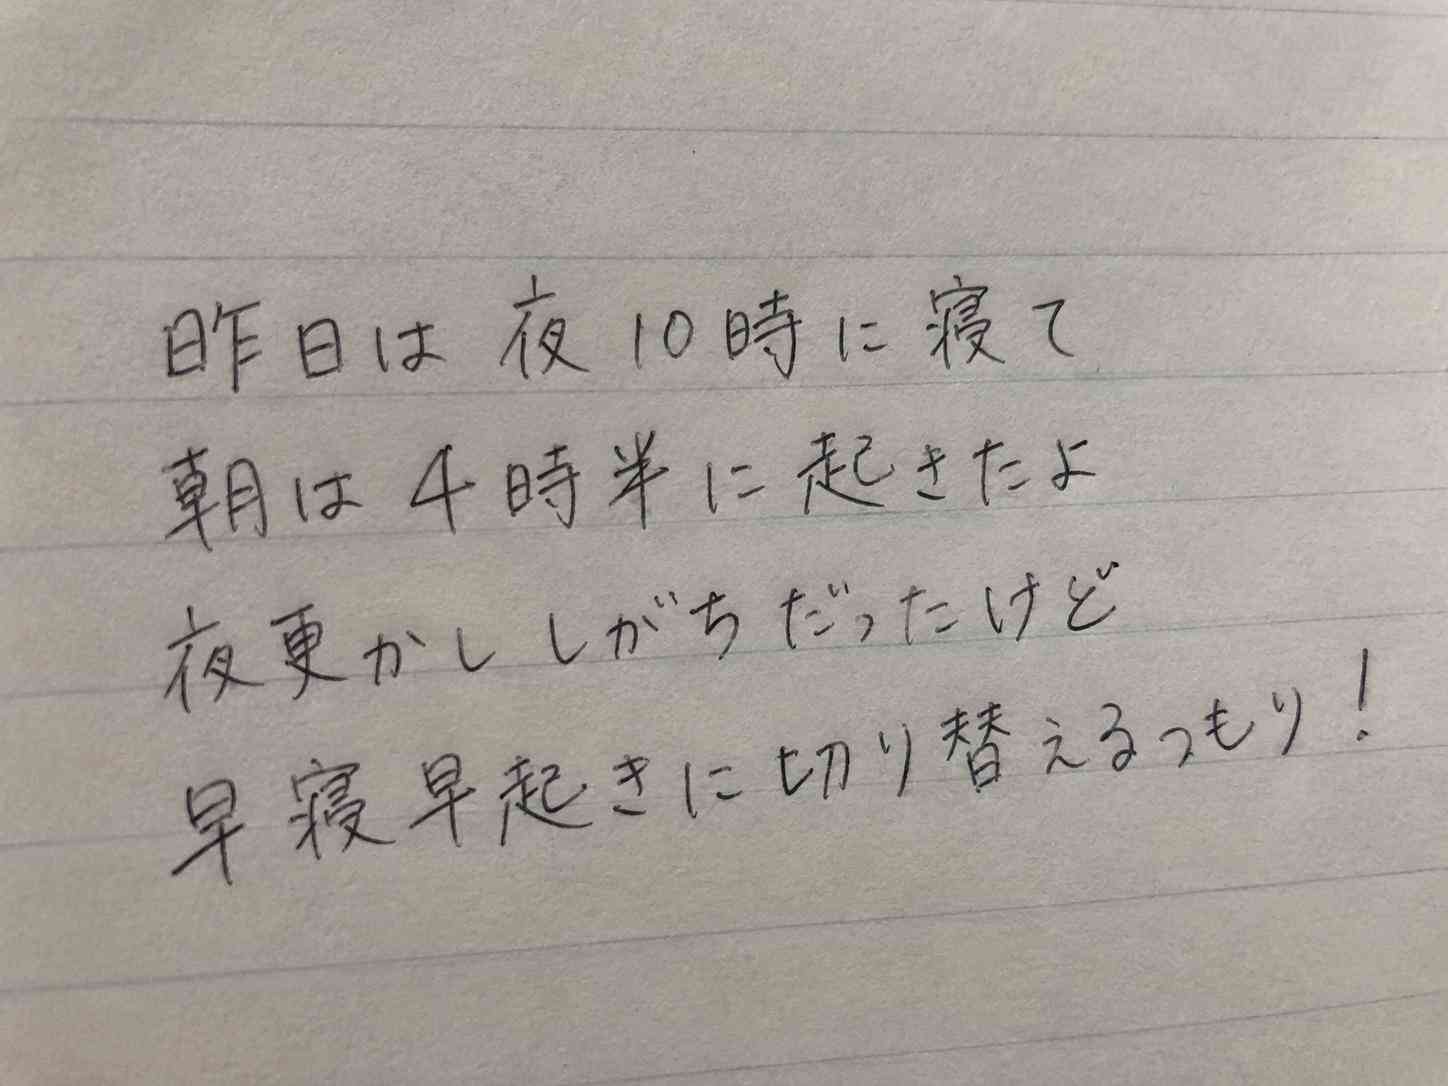 昨日は夜10時に寝て
朝は4時半に起きたよ
夜更かししがちだったけど
早寝早起きに切り替えるつもり!